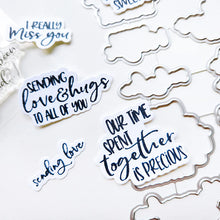 I REALLY
Miss you
SENDING
love & hugs
TO ALL OF YOU
OUR TIME
SPENT
together
IS PRECIOUS
sending love